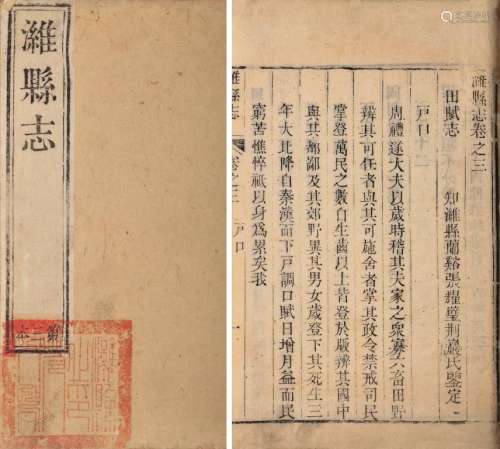 濰縣志
第二本
濰縣志卷之三
田賦志　知濰縣蘭谿張耀璧荆巖氏鑒定
戶口
周禮遂大夫以歲時稽其夫家之衆寡六畜田野
辨其可任者與其可施舍者掌其政令禁戒司民
掌登萬民之數自生齒以上皆登於版辨其國中
與其都鄙及其郊野異其男女歲登下其死生三
年大比降自秦漢而下戶調口賦日增月益而民
窮苦憔悴祇以身爲累矣我
濰縣志　卷之三　戶口　一